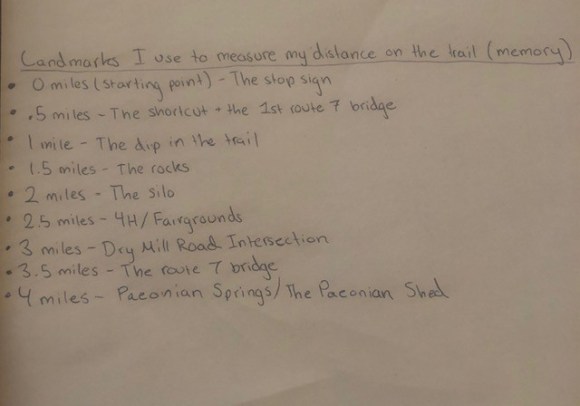 Landmarks I use to measure my distance on the trail (memory)
• 0 miles (starting point) - The stop sign
• .5 miles - The shortcut + the 1st route 7 bridge
• 1 mile - The dip in the trail
• 1.5 miles - The rocks
• 2 miles - The silo
• 2.5 miles - 4H/Fairgrounds
• 3 miles - Dry Mill Road Intersection
• 3.5 miles - The route 7 bridge
• 4 miles - Paeonian Springs/The Paeonian Shed